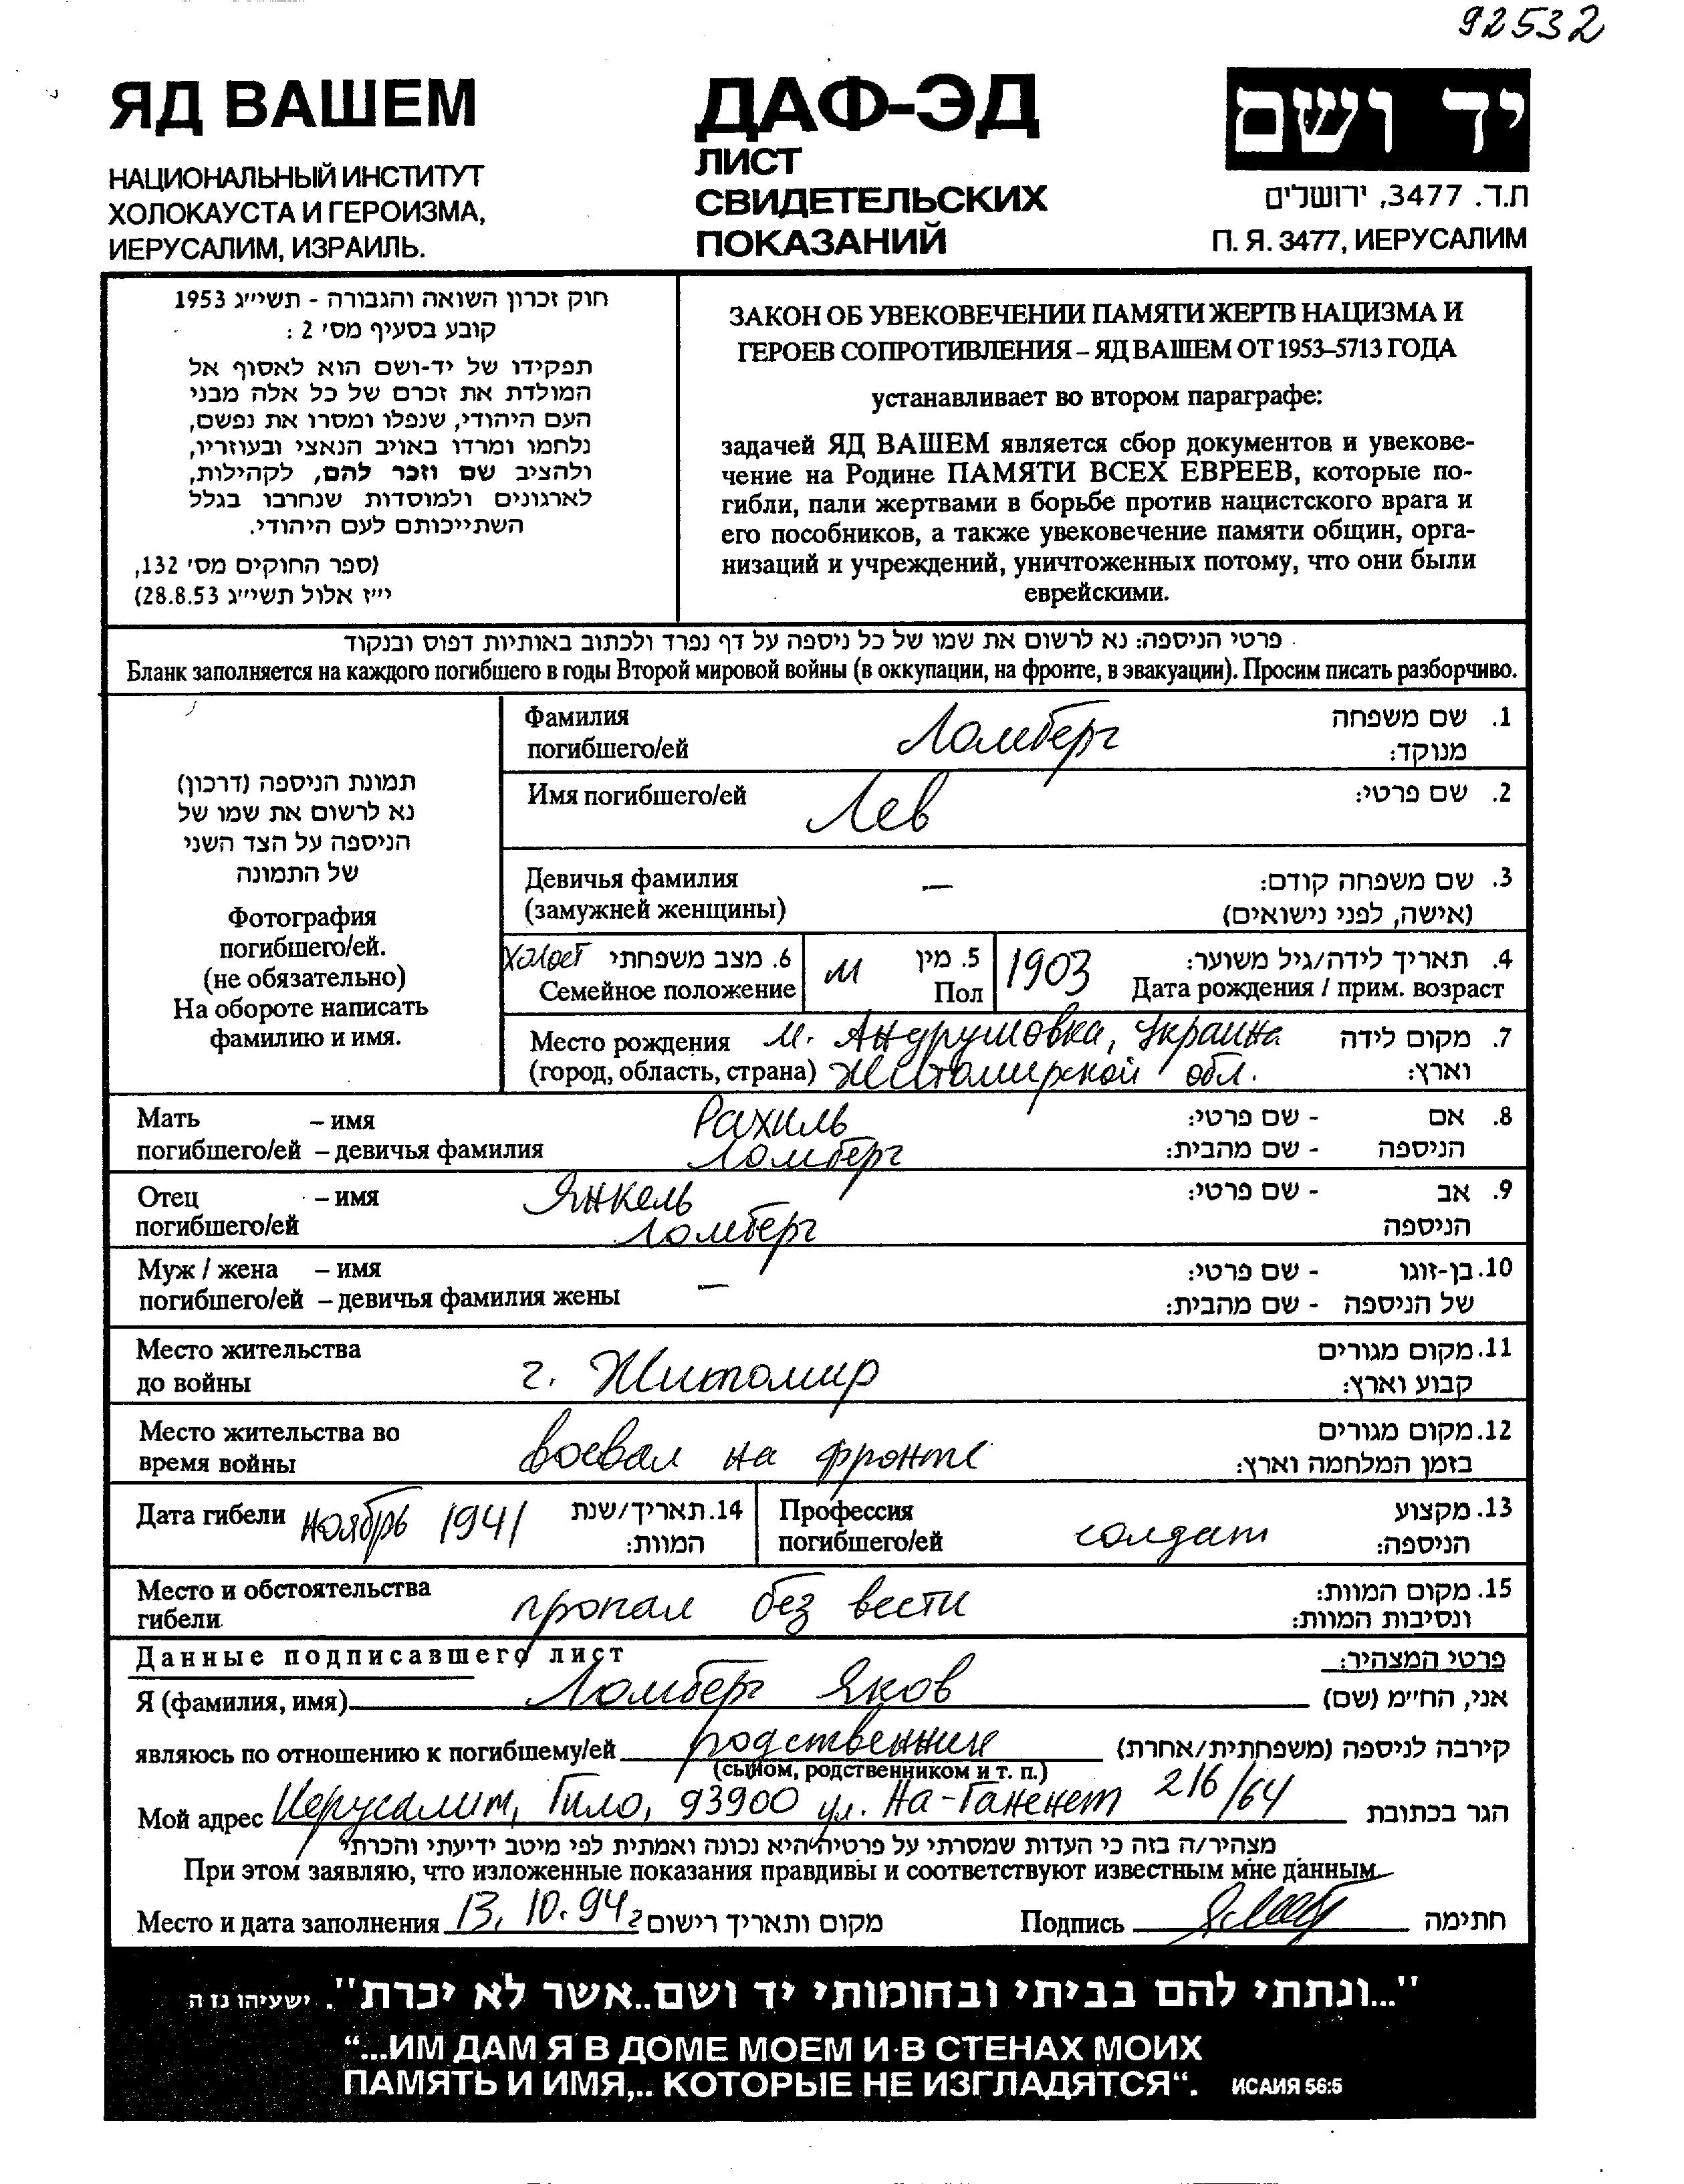 92532
ЯД ВАШЕМ
НАЦИОНАЛЬНЫЙ ИНСТИТУТ
ХОЛОКАУСТА И ГЕРОИЗМА,
ИЕРУСАЛИМ, ИЗРАИЛЬ.
ДАФ-ЭД
ЛИСТ
СВИДЕТЕЛЬСКИХ
ПОКАЗАНИЙ
יד ושם
ת.ד. 3477, ירושלים
П. Я. 3477, ИЕРУСАЛИМ
חוק זכרון השואה והגבורה - תשי״ג 1953
קובע בסעיף מס' 2 :
תפקידו של יד-ושם הוא לאסוף אל
המולדת את זכרם של כל אלה מבני
העם היהודי, שנפלו ומסרו את נפשם,
נלחמו ומרדו באויב הנאצי ובעוזריו,
ולהציב שם וזכר להם, לקהילות,
לארגונים ולמוסדות שנחרבו בגלל
השתייכותם לעם היהודי.
(ספר החוקים מס' 132,
י״ז אלול תשי״ג 28.8.53)
ЗАКОН ОБ УВЕКОВЕЧЕНИИ ПАМЯТИ ЖЕРТВ НАЦИЗМА И
ГЕРОЕВ СОПРОТИВЛЕНИЯ – ЯД ВАШЕМ ОТ 1953–5713 ГОДА
устанавливает во втором параграфе:
задачей ЯД ВАШЕМ является сбор документов и увекове-
чение на Родине ПАМЯТИ ВСЕХ ЕВРЕЕВ, которые по-
гибли, пали жертвами в борьбе против нацистского врага и
его пособников, а также увековечение памяти общин, орга-
низаций и учреждений, уничтоженных потому, что они были
еврейскими.
פרטי הניספה: נא לרשום את שמו של כל ניספה על דף נפרד ולכתוב באותיות דפוס ובנקוד
Бланк заполняется на каждого погибшего в годы Второй мировой войны (в оккупации, на фронте, в эвакуации). Просим писать разборчиво.
תמונת הניספה (דרכון)
נא לרשום את שמו של
הניספה על הצד השני
של התמונה
Фотография
погибшего/ей.
(не обязательно)
На обороте написать
фамилию и имя.
Фамилия
погибшего/ей
Ломберг
1. שם משפחה
מנוקד:
Имя погибшего/ей
Лев
2. שם פרטי:
Девичья фамилия
(замужней женщины)
—
3. שם משפחה קודם:
(אישה, לפני נישואים)
холост 6. מצב משפחתי
Семейное положение
м
5. מין
Пол
1903
4. תאריך לידה/גיל משוער:
Дата рождения / прим. возраст
Место рождения
(город, область, страна)
м. Андрушовка, Украина
Житомирской обл.
7. מקום לידה
וארץ:
Мать – имя
погибшего/ей – девичья фамилия
Рахиль
Ломберг
8. אם - שם פרטי:
הניספה - שם מהבית:
Отец – имя
погибшего/ей
Янкель
Ломберг
9. אב - שם פרטי:
הניספה
Муж / жена – имя
погибшего/ей – девичья фамилия жены
—
10. בן-זוגו - שם פרטי:
של הניספה - שם מהבית:
Место жительства
до войны
г. Житомир
11. מקום מגורים
קבוע וארץ:
Место жительства во
время войны
воевал на фронте
12. מקום מגורים
בזמן המלחמה וארץ:
Дата гибели ноябрь 1941
14. תאריך/שנת
המוות:
Профессия
погибшего/ей
солдат
13. מקצוע
הניספה:
Место и обстоятельства
гибели
пропал без вести
15. מקום המוות:
ונסיבות המוות:
Данные подписавшего лист
פרטי המצהיר:
Я (фамилия, имя) Ломберг Яков אני, החי״מ (שם)
являюсь по отношению к погибшему/ей родственник קירבה לניספה (משפחתית/אחרת)
(сыном, родственником и т. п.)
Мой адрес Иерусалим, Гило, 93900 ул. На-Ганенет 216/64 הגר בכתובת
מצהיר/ה בזה כי העדות שמסרתי על פרטיה היא נכונה ואמתית לפי מיטב ידיעתי והכרתי
При этом заявляю, что изложенные показания правдивы и соответствуют известным мне данным
Место и дата заполнения 13.10.94г מקום ותאריך רישום
Подпись חתימה
"...ונתתי להם בביתי ובחומותי יד ושם..אשר לא יכרת". ישעיהו נז ה
“...ИМ ДАМ Я В ДОМЕ МОЕМ И В СТЕНАХ МОИХ
ПАМЯТЬ И ИМЯ,.. КОТОРЫЕ НЕ ИЗГЛАДЯТСЯ“. ИСАИЯ 56:5